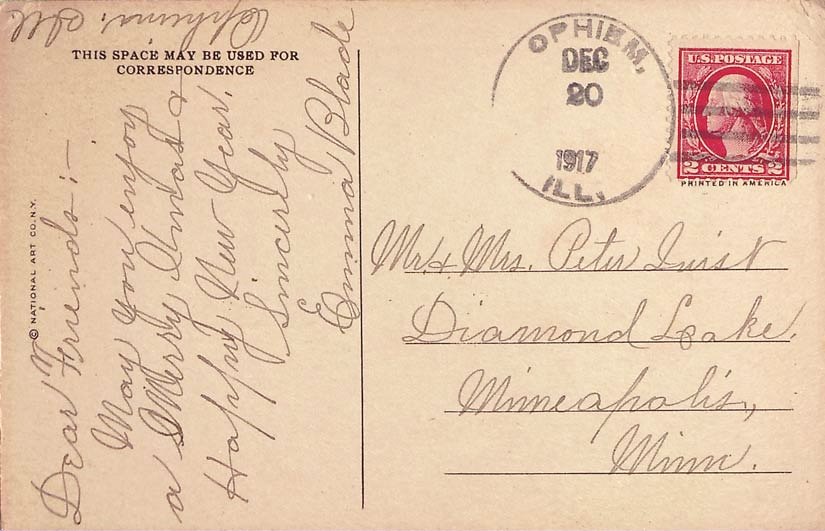 Ophiem, Ill
THIS SPACE MAY BE USED FOR
CORRESPONDENCE
Dear Friends:—
May you enjoy
a Merry Xmas &
Happy New Year.
Sincerely
Emma Blade
© NATIONAL ART CO. N.Y.
OPHIEM,
DEC
20
1917
ILL.
U.S. POSTAGE
2 CENTS 2
PRINTED IN AMERICA
Mr. & Mrs. Peter
Diamond Lake.
Minneapolis,
Minn.